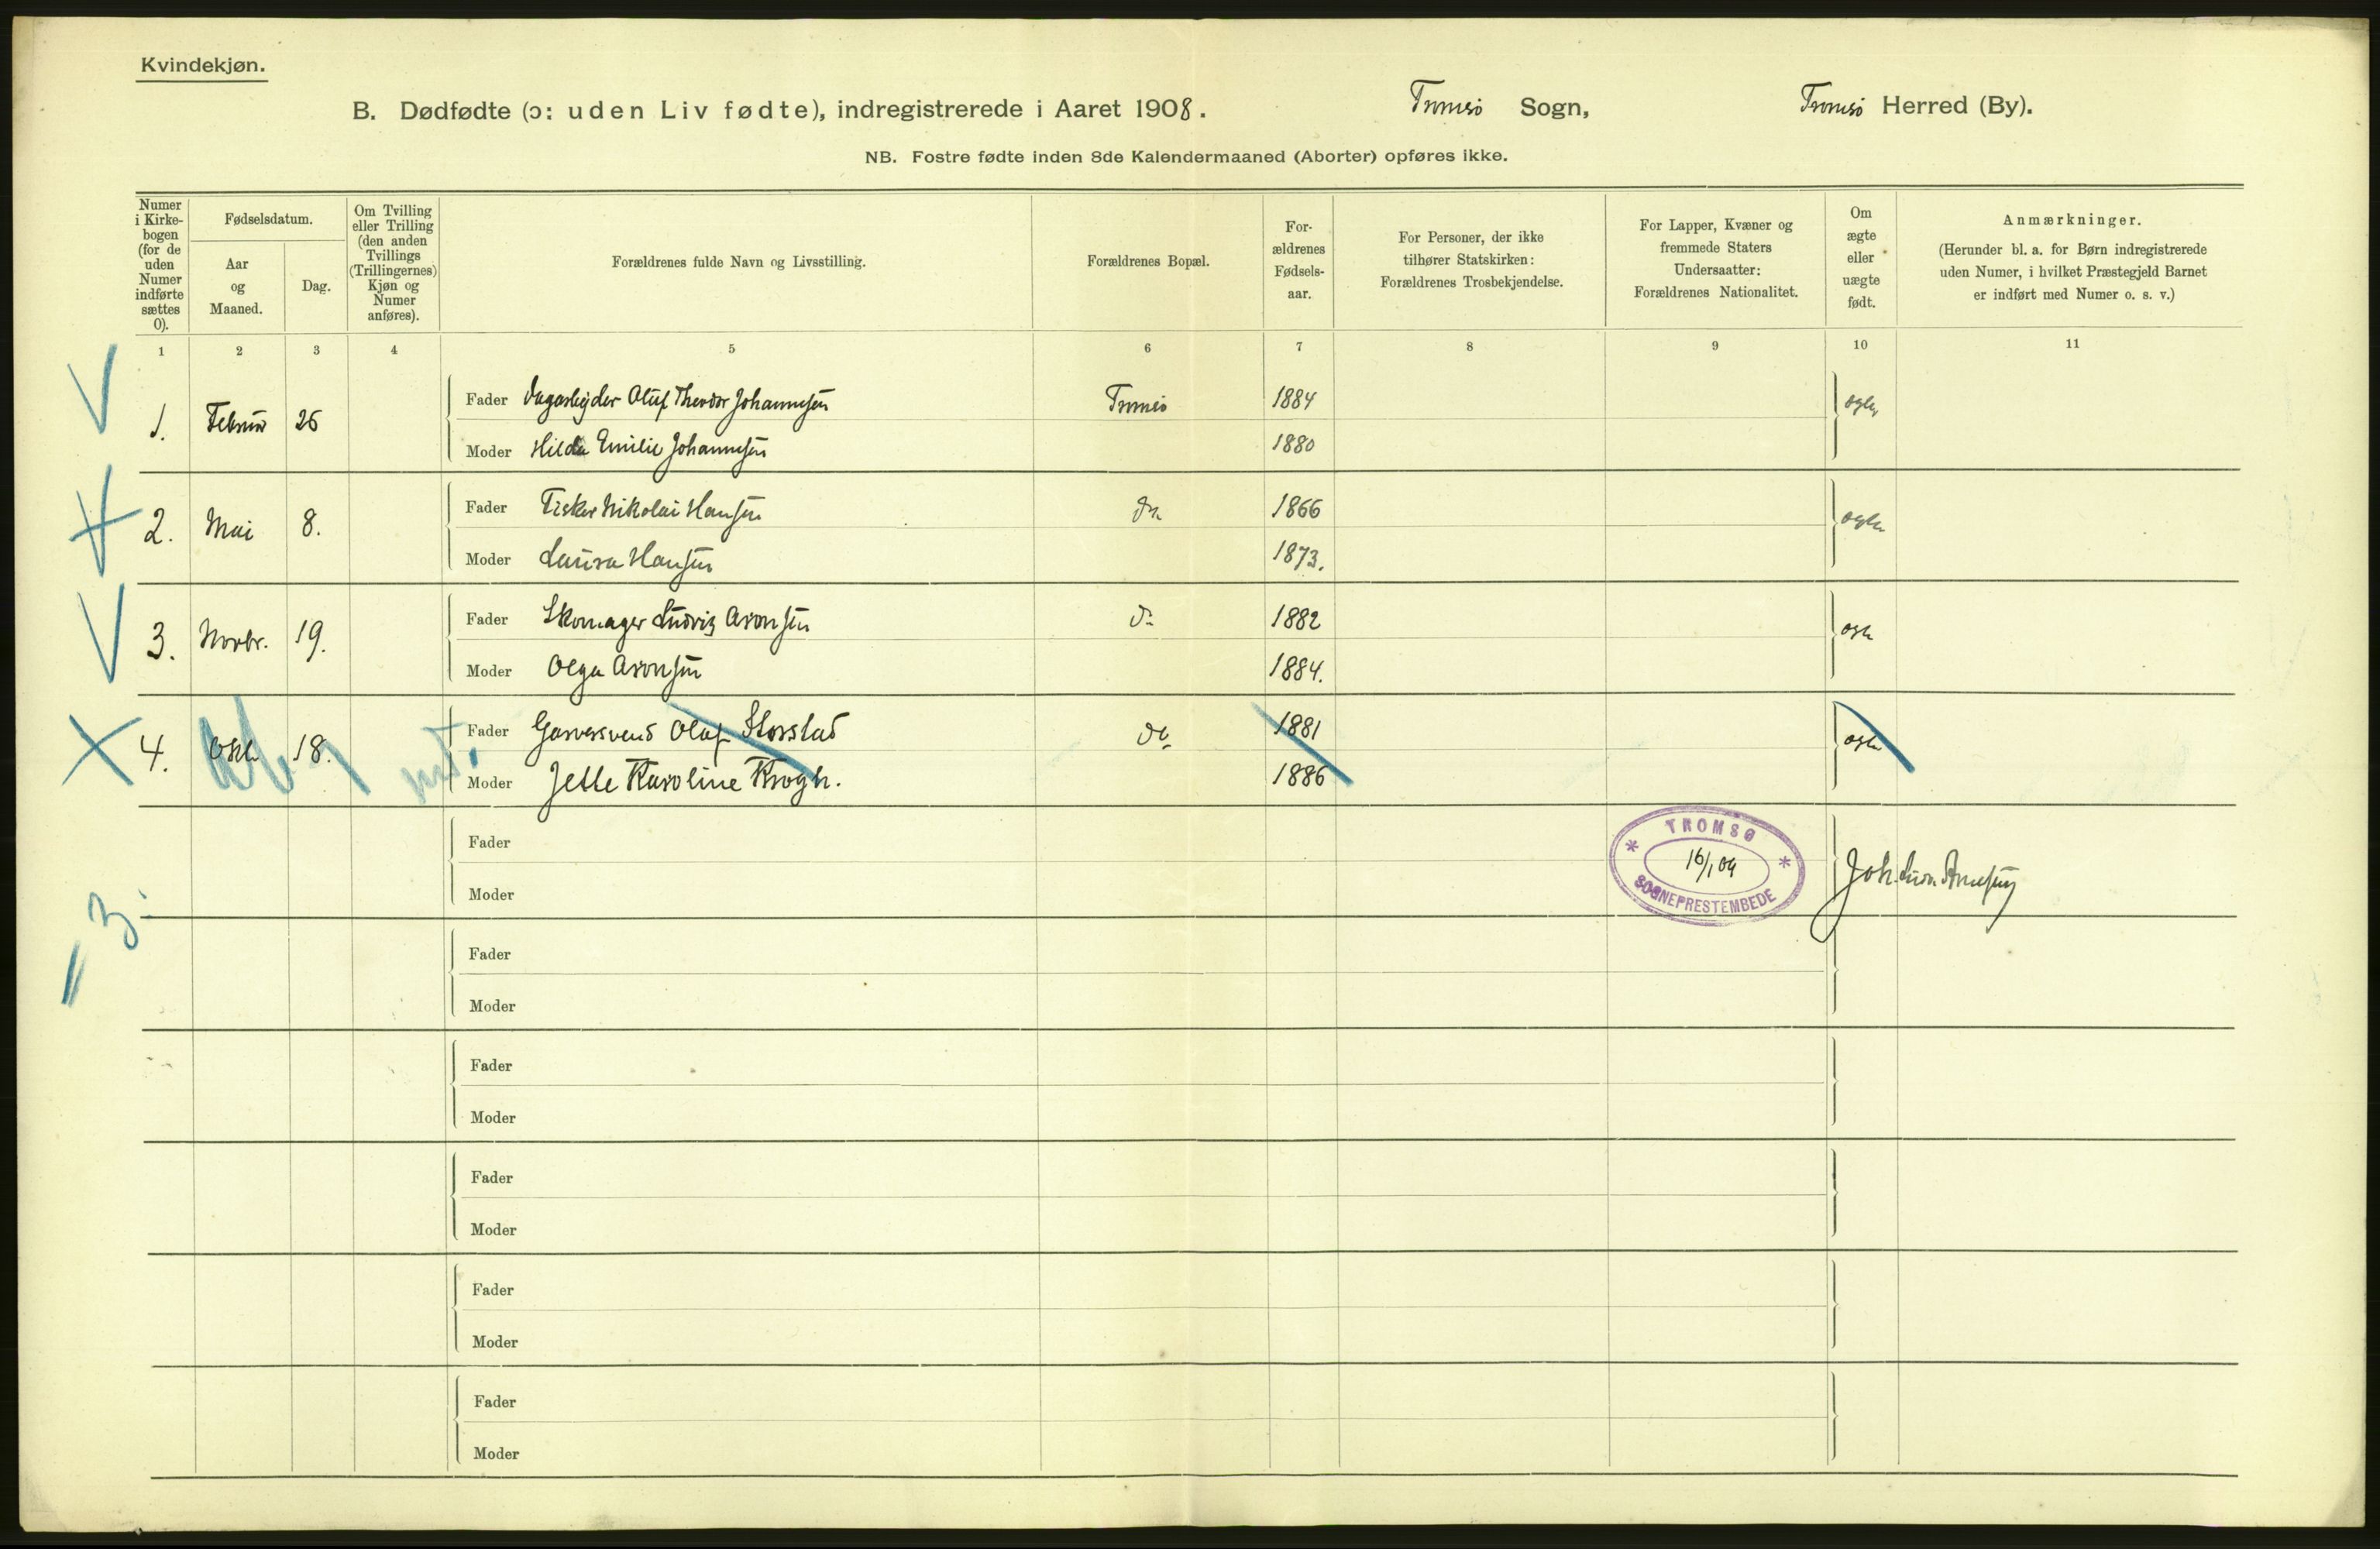 Kvindekjøn.
B. Dødfødte (ɔ: uden Liv fødte), indregistrerede i Aaret 1908. Tromsø Sogn, Tromsø Herred (By).
NB. Fostre fødte inden 8de Kalendermaaned (Aborter) opføres ikke.
Numer i Kirke-bogen (for de uden Numer indførte sættes 0).
Fødselsdatum.
Aar og Maaned.
Dag.
Om Tvilling eller Trilling (den anden Tvillings (Trillingernes) Kjøn og Numer anføres).
Forældrenes fulde Navn og Livsstilling.
Forældrenes Bopæl.
For-ældrenes Fødsels-aar.
For Personer, der ikke tilhører Statskirken: Forældrenes Trosbekjendelse.
For Lapper, Kvæner og fremmede Staters Undersaatter: Forældrenes Nationalitet.
Om ægte eller uægte født.
Anmærkninger.
(Herunder bl. a. for Børn indregistrerede uden Numer, i hvilket Præstegjeld Barnet er indført med Numer o. s. v.)
1 2 3 4 5 6 7 8 9 10 11
1. Februar 26 Fader Dagarbejder Oluf Theodor Johannesen Tromsø 1884
Moder Hilda Emilie Johannesen 1880
2. Mai 8. Fader Fisker Nikolai Hansen do 1866
Moder Laura Hansen 1873.
3. Novbr. 19. Fader Skomager Ludvig Aronsen do 1882
Moder Olga Aronsen 1884.
4. 18. Fader Garversvend Olaf Storstad do 1881
Moder Jette Karoline Krogh. 1886
Fader
Moder
TROMSØ
16/1 09
SOGNEPRESTEMBEDE
= 3.
Fader
Moder
Fader
Moder
Fader
Moder
Fader
Moder
Fader
Moder